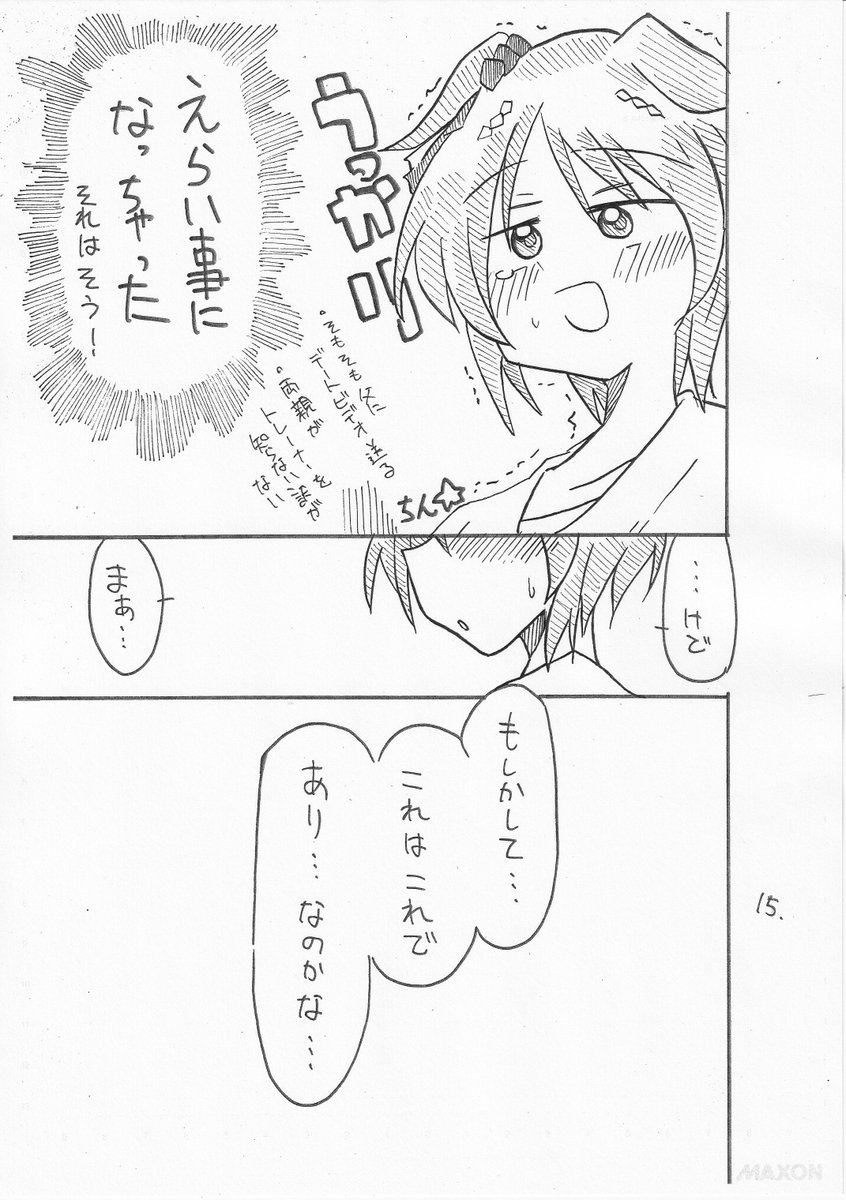 うっかり
えらい事に
なっちゃった
それはそうー
・そもそも父に
デートビデオ送る
・両親が
トレーナーを
知らない訳が
ない
ちん☆
…けど
まぁ…
もしかして…
これはこれで
あり…なのかな…
15.
MAXON